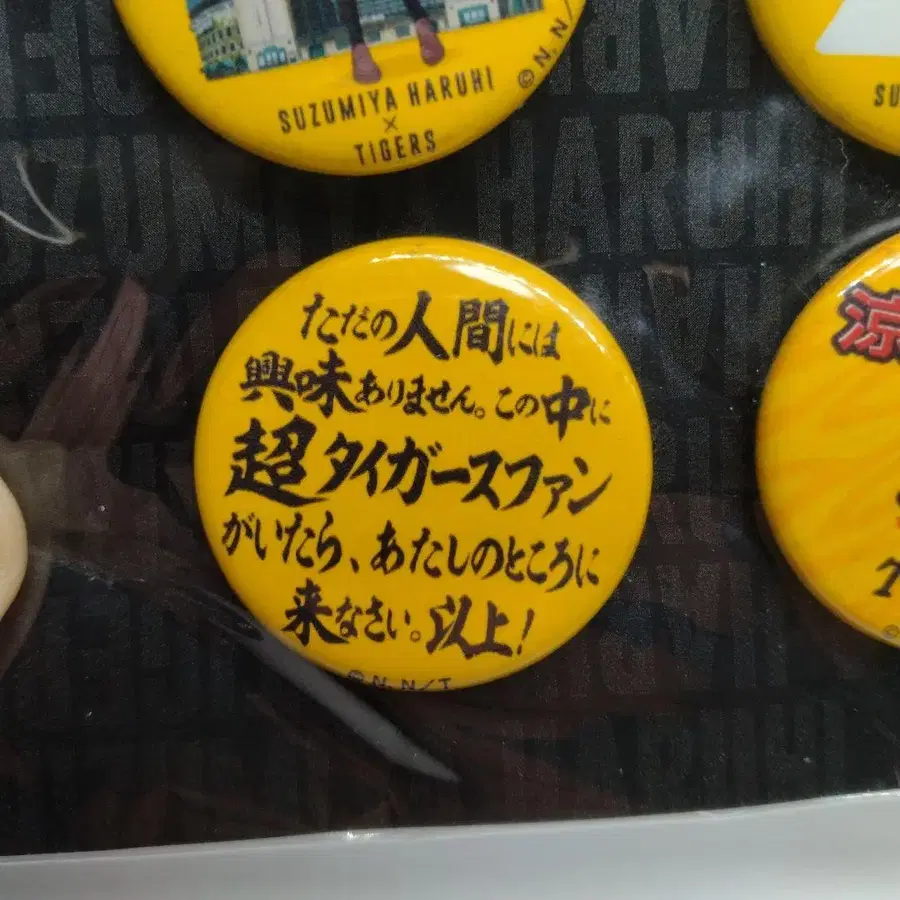 SUZUMIYA HARUHI
×
TIGERS
©N. N/
SU
ただの人間には
興味ありません。この中に
超タイガースファン
がいたら、あたしのところに
来なさい。以上!
©N. N/T
涼
T
SUZUMIYA HARUHI